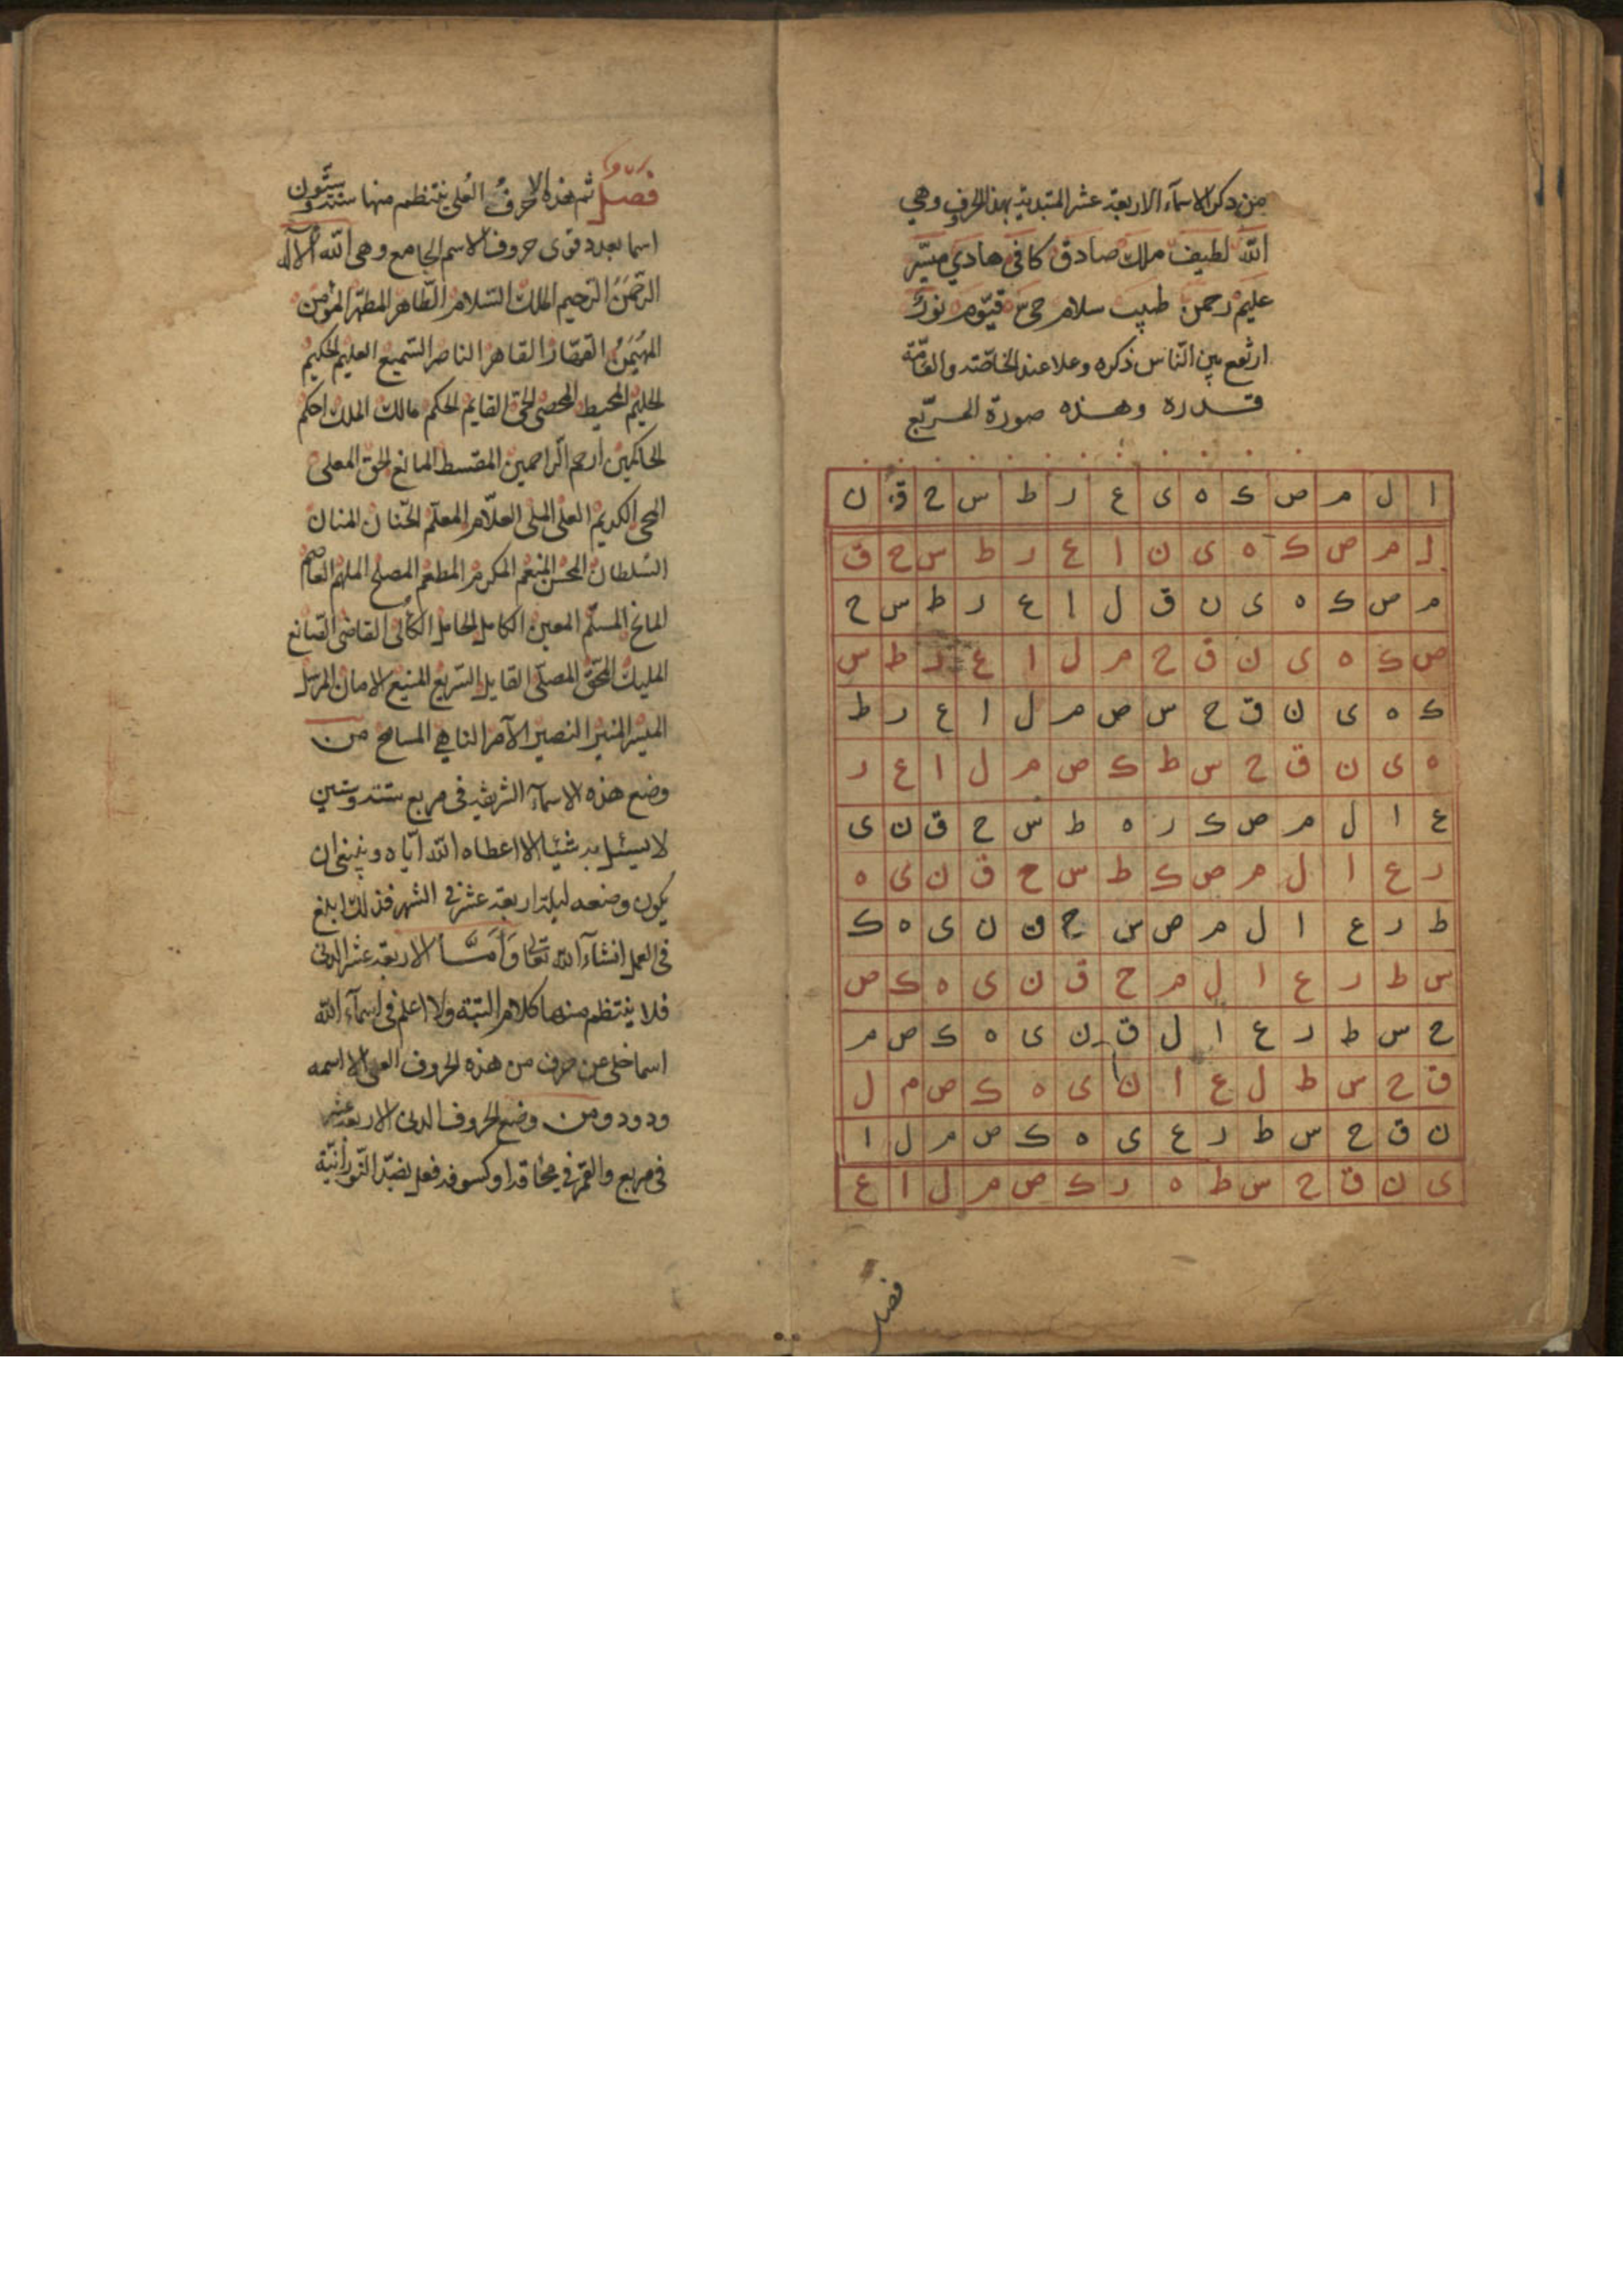 من ذكر الاسمآء الاربعة عشر المتبدية بهذا الحروف وهي
الله لطيف ملك صادق كافى هادي ميسّر
عليم رحمن طيب سلام حى قيّوم نور
ارتفع بين النّاس ذكره وعلا عند الخاصّة والعامّة
قدره وهذه صورة المربّع
ا ل م ص ك ه ى ع ر ط س ح ق ن
ل م ص ك ه ى ن ا ع ر ط س ح ق
م ص ك ه ى ن ق ل ا ع ر ط س ح
ص ك ه ى ن ق ح م ل ا ع ر ط س
ك ه ى ن ق ح س ص م ل ا ع ر ط
ه ى ن ق ح س ط ك ص م ل ا ع ر
ع ا ل م ص ك ر ه ط س ح ق ن ى
ر ع ا ل م ص ك ط س ح ق ن ى ه
ط ر ع ا ل م ص س ح ق ن ى ه ك
س ط ر ع ا ل م ح ق ن ى ه ك ص
ح س ط ر ع ا ل ق ن ى ه ك ص م
ق ح س ط ل ع ا ن ى ه ك ص م ل
ن ق ح س ط ر ع ى ه ك ص م ل ا
ى ن ق ح س ط ه ر ك ص م ل ا ع
فصل
فصل ثم هذه الاحرف العلى ينتظم منها ستة وستون
اسما بعدد قوى حروف الاسم الجامع وهى الله الاله
الرّحمن الرّحيم الملك السّلام الطّاهر المطهّر المؤمن
المهيمن القهّار القاهر الناصر السّميع العليم الحكيم
الحليم المحيط المحصى الحىّ القايم الحكم مالك الملك احكم
الحاكمين ارحم الرّاحمين المقسط المانع الحق المعلى
المحى الكريم العلى الملى العلّام المعلّم الحنّان المنان
السّلطان المحسن المنعم المكرم المطعم المصلح الملهم العاصم
المانح المسلّم المعين الكامل الحامل الكالى القاضى الصانع
المليك المحقّ القايل السّريع المنيع الامان المرسل
الميسّر المنير النصير الآمر الناهي المسامح من
وضع هذه الاسمآء الشريفة فى مربع ستة وستين
لا يسئل به شيئا الا اعطاه الله ايّاه وينبغى ان
يكون وضعه ليلة اربعة عشر فى الشهر فذلك ابلغ
فى العمل انشآء الله تعالى وأمّا الاربعة عشر الدنى
فلا ينتظم منها كلام البتّة ولا اعلم فى اسمآء الله
اسما خلى عن حرف من هذه الحروف العلى الا اسمه
ودود ومن وضع الحروف الدنى الاربعة عشر
فى مربع والقمر في محاقه او كسوفه فعل بضدّ النّورانيّة